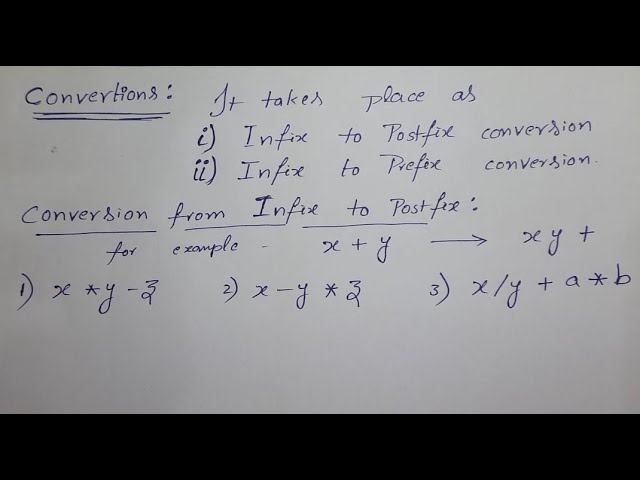 Convertions: It takes place as
i) Infix to Postfix conversion
ii) Infix to Prefix conversion.
Conversion from Infix to Postfix:
for example - x + y → x y +
1) x * y - z 2) x - y * z 3) x / y + a * b